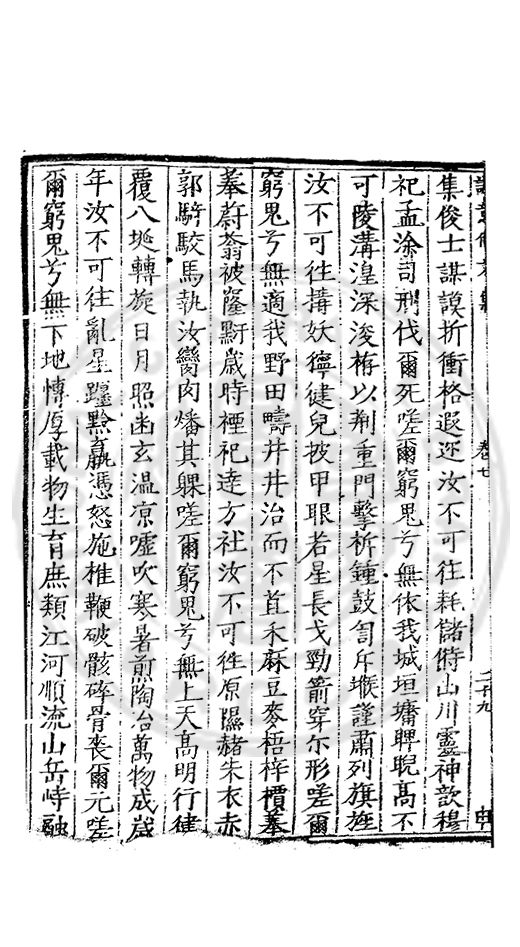 卷七
二十九
集俊士謀謨折衝格遐迩汝不可往耗儲偫山川靈神歆穆
祀孟涂司刑伐爾死嗟爾窮鬼兮無依我城垣墉睥睨髙不
可陵溝湟深浚栫以荆重門擊柝鍾鼓訇斥堠謹肅列旗旌
汝不可往搆妖獰健兒披甲眼若星長戈勁箭穿尓形嗟爾
窮鬼兮無適我野田疇井井治而不苴禾麻豆麥梧梓檟
蔚蓊被隆歲時禋祀達方社汝不可徃原隰赭朱衣赤
郭騎駮馬執汝臠肉燔其髁嗟爾窮鬼兮無上天髙明行健
覆八埏轉旋日月照幽玄温凉噓吹寒暑煎陶冶萬物成歲
年汝不可往亂星躔黔羸憑怒施椎鞭破骸碎骨喪爾元嗟
爾窮鬼兮無下地愽厚載物生育庶類江河順流山岳峙融